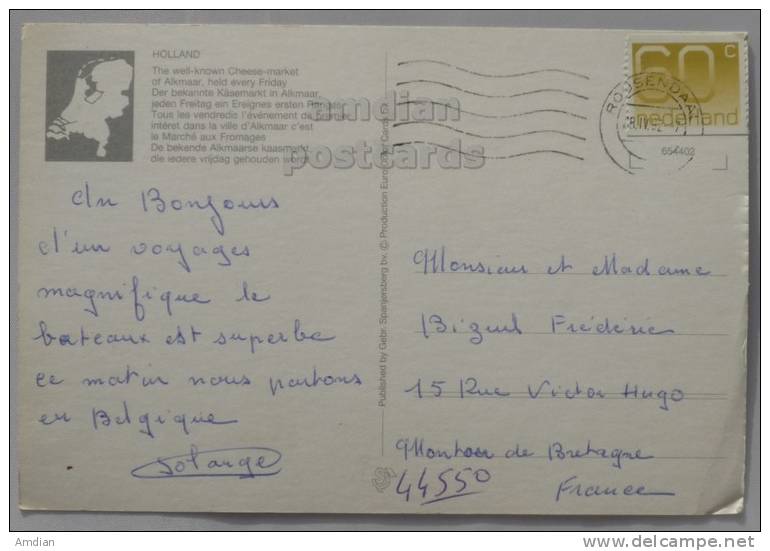 HOLLAND
The well-known Cheese-market
of Alkmaar, held every Friday
Der bekannte Käsemarkt in Alkmaar,
jeden Freitag ein Ereignes ersten
Tous les vendredis l'événement de premier
intéret dans la ville d'Alkmaar c'est
le Marché aux Fromages
De bekende Alkmaarse kaasmarkt
die iedere vrijdag gehouden wordt
amdian
postcards
60 c
nederland
ROOSENDAAL
654402
Un Bonjours
d'un voyages
magnifique le
bateaux est superbe
ce matin nous partons
en Belgique
Solange
Published by Gebr. Spanjersberg bv. © Production Euro Color Cards
Monsieur et Madame
Bizeul Frédéric
15 Rue Victor Hugo
Montoir de Bretagne
44550
France
Amdian
delcampe.net